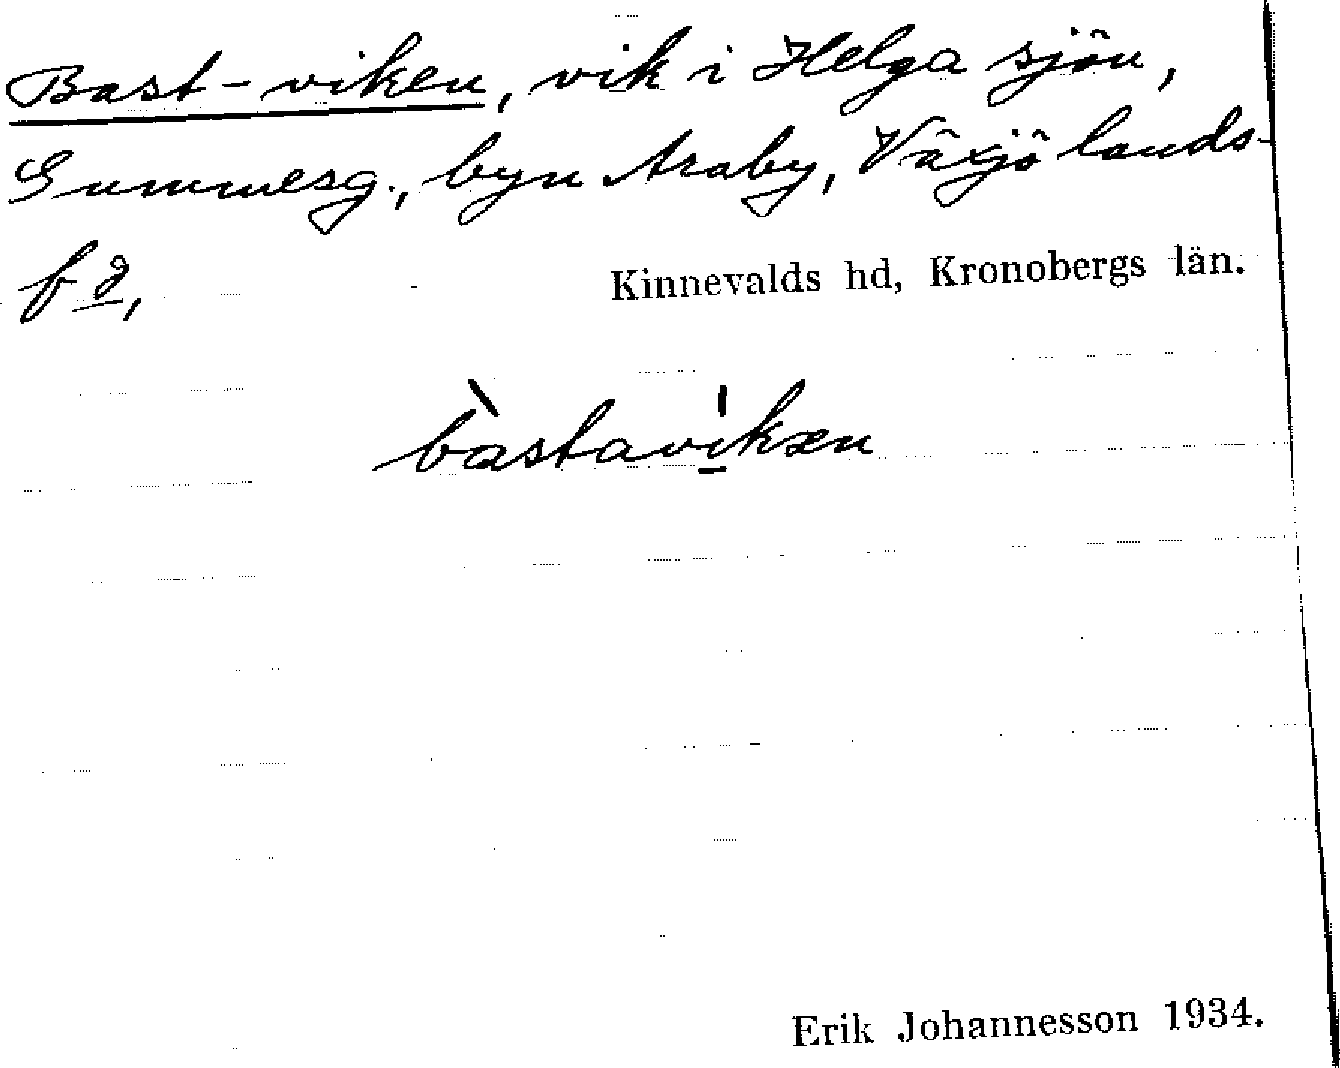 Bast-viken, vik i Helga sjön,
Gummesg., byn Araby, Växjö lands-
fd, Kinnevalds hd, Kronobergs län.
bàstavíkæn
Erik Johannesson 1934.